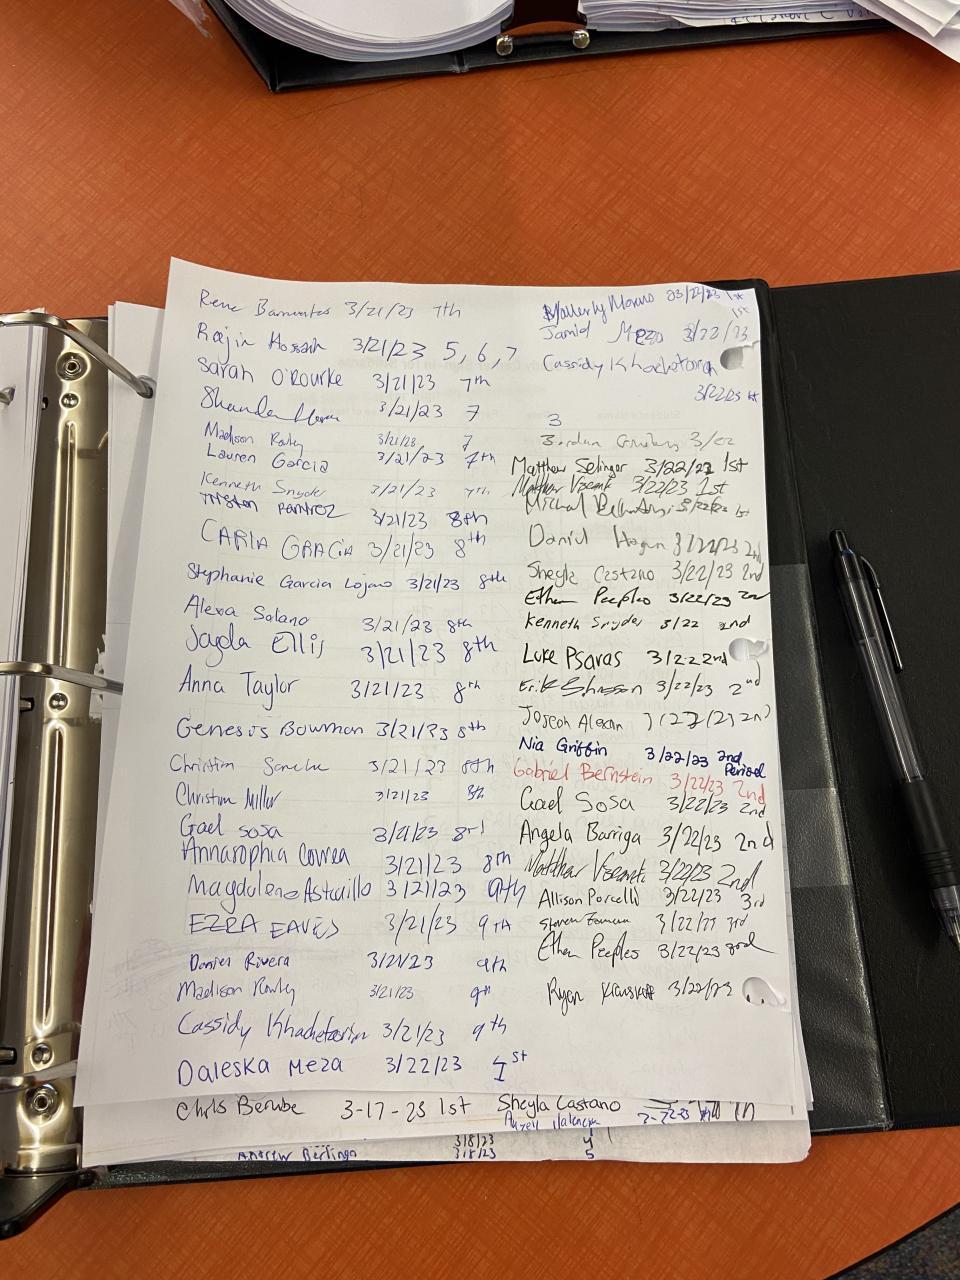 Rene Barrientos 3/21/23 7th
Rajin Hossain 3/21/23 5, 6, 7
Sarah O'Rourke 3/21/23 7th
3/21/23 7
Madison Rowley 3/21/23 7
Lauren Garcia 3/21/23 7th
Kenneth Snyder 3/21/23 7th
Tristen Ramirez 3/21/23 8th
CARLA GRACIA 3/21/23 8th
Stephanie Garcia Lojano 3/21/23 8th
Alexa Solano 3/21/23 8th
Jayda Ellis 3/21/23 8th
Anna Taylor 3/21/23 8th
Genesis Bowman 3/21/23 8th
Christian 3/21/23 8th
Christina Miller 3/21/23 8th
Gael Sosa 3/21/23 8rd
Annasophia Correa 3/21/23 8th
Magdaleno Astudillo 3/21/23 9th
EZRA EAVES 3/21/23 9th
Daniel Rivera 3/21/23 9th
Madison Rowley 3/21/23 9th
Cassidy Khachetoorian 3/21/23 9th
Daleska Meza 3/22/23 1st
03/22/23 1st
Jamid 3/22/23 1st
Cassidy Khachetoorian
3/22/23 1st
3
3/22
Matthew Selinger 3/22/23 1st
Matthew 3/22/23 1st
Michal 3/22/23 1st
Daniel Hogan 3/22/23 2nd
Sheyla Castano 3/22/23 2nd
Ethan Peeples 3/22/23 2nd
Kenneth Snyder 3/22 2nd
Luke Psaras 3/22 2nd
Erik 3/22/23 2nd
Joseph 3/22/23 2nd
Nia Griffin 3/22/23 2nd Period
Gabriel Bernstein 3/22/23 2nd
Gael Sosa 3/22/23 2nd
Angela Barriga 3/22/23 2nd
Matthew 3/22/23 2nd
Allison Porcelli 3/22/23 3rd
Steven 3/22/23 3rd
Ethan Peeples 3/22/23 3rd
Ryan 3/22/23
Chris Berube 3-17-23 1st Sheyla Castano
Valencia
3/8/23 4
Andrew Berlinga 3/8/23 5